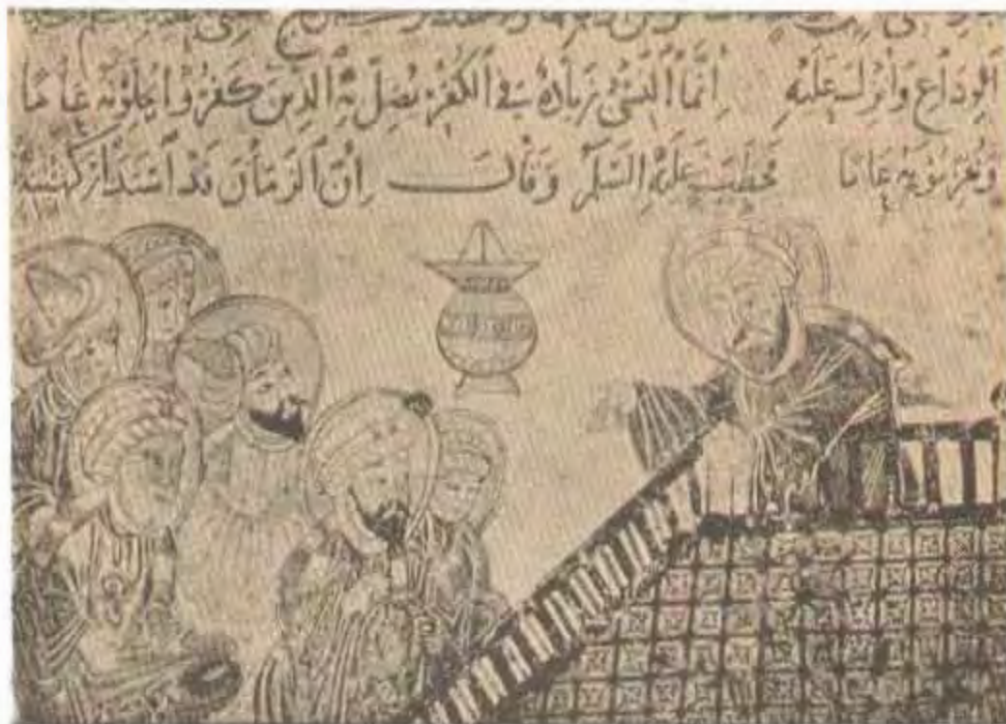 الوداع وأنزل عليه إنما النسئ زيادة في الكفر يضل به الذين كفروا يحلونه عاما
ويحرمونه عاما فخطب عليه السلم وقال إن الزمان قد استدار كهيئته